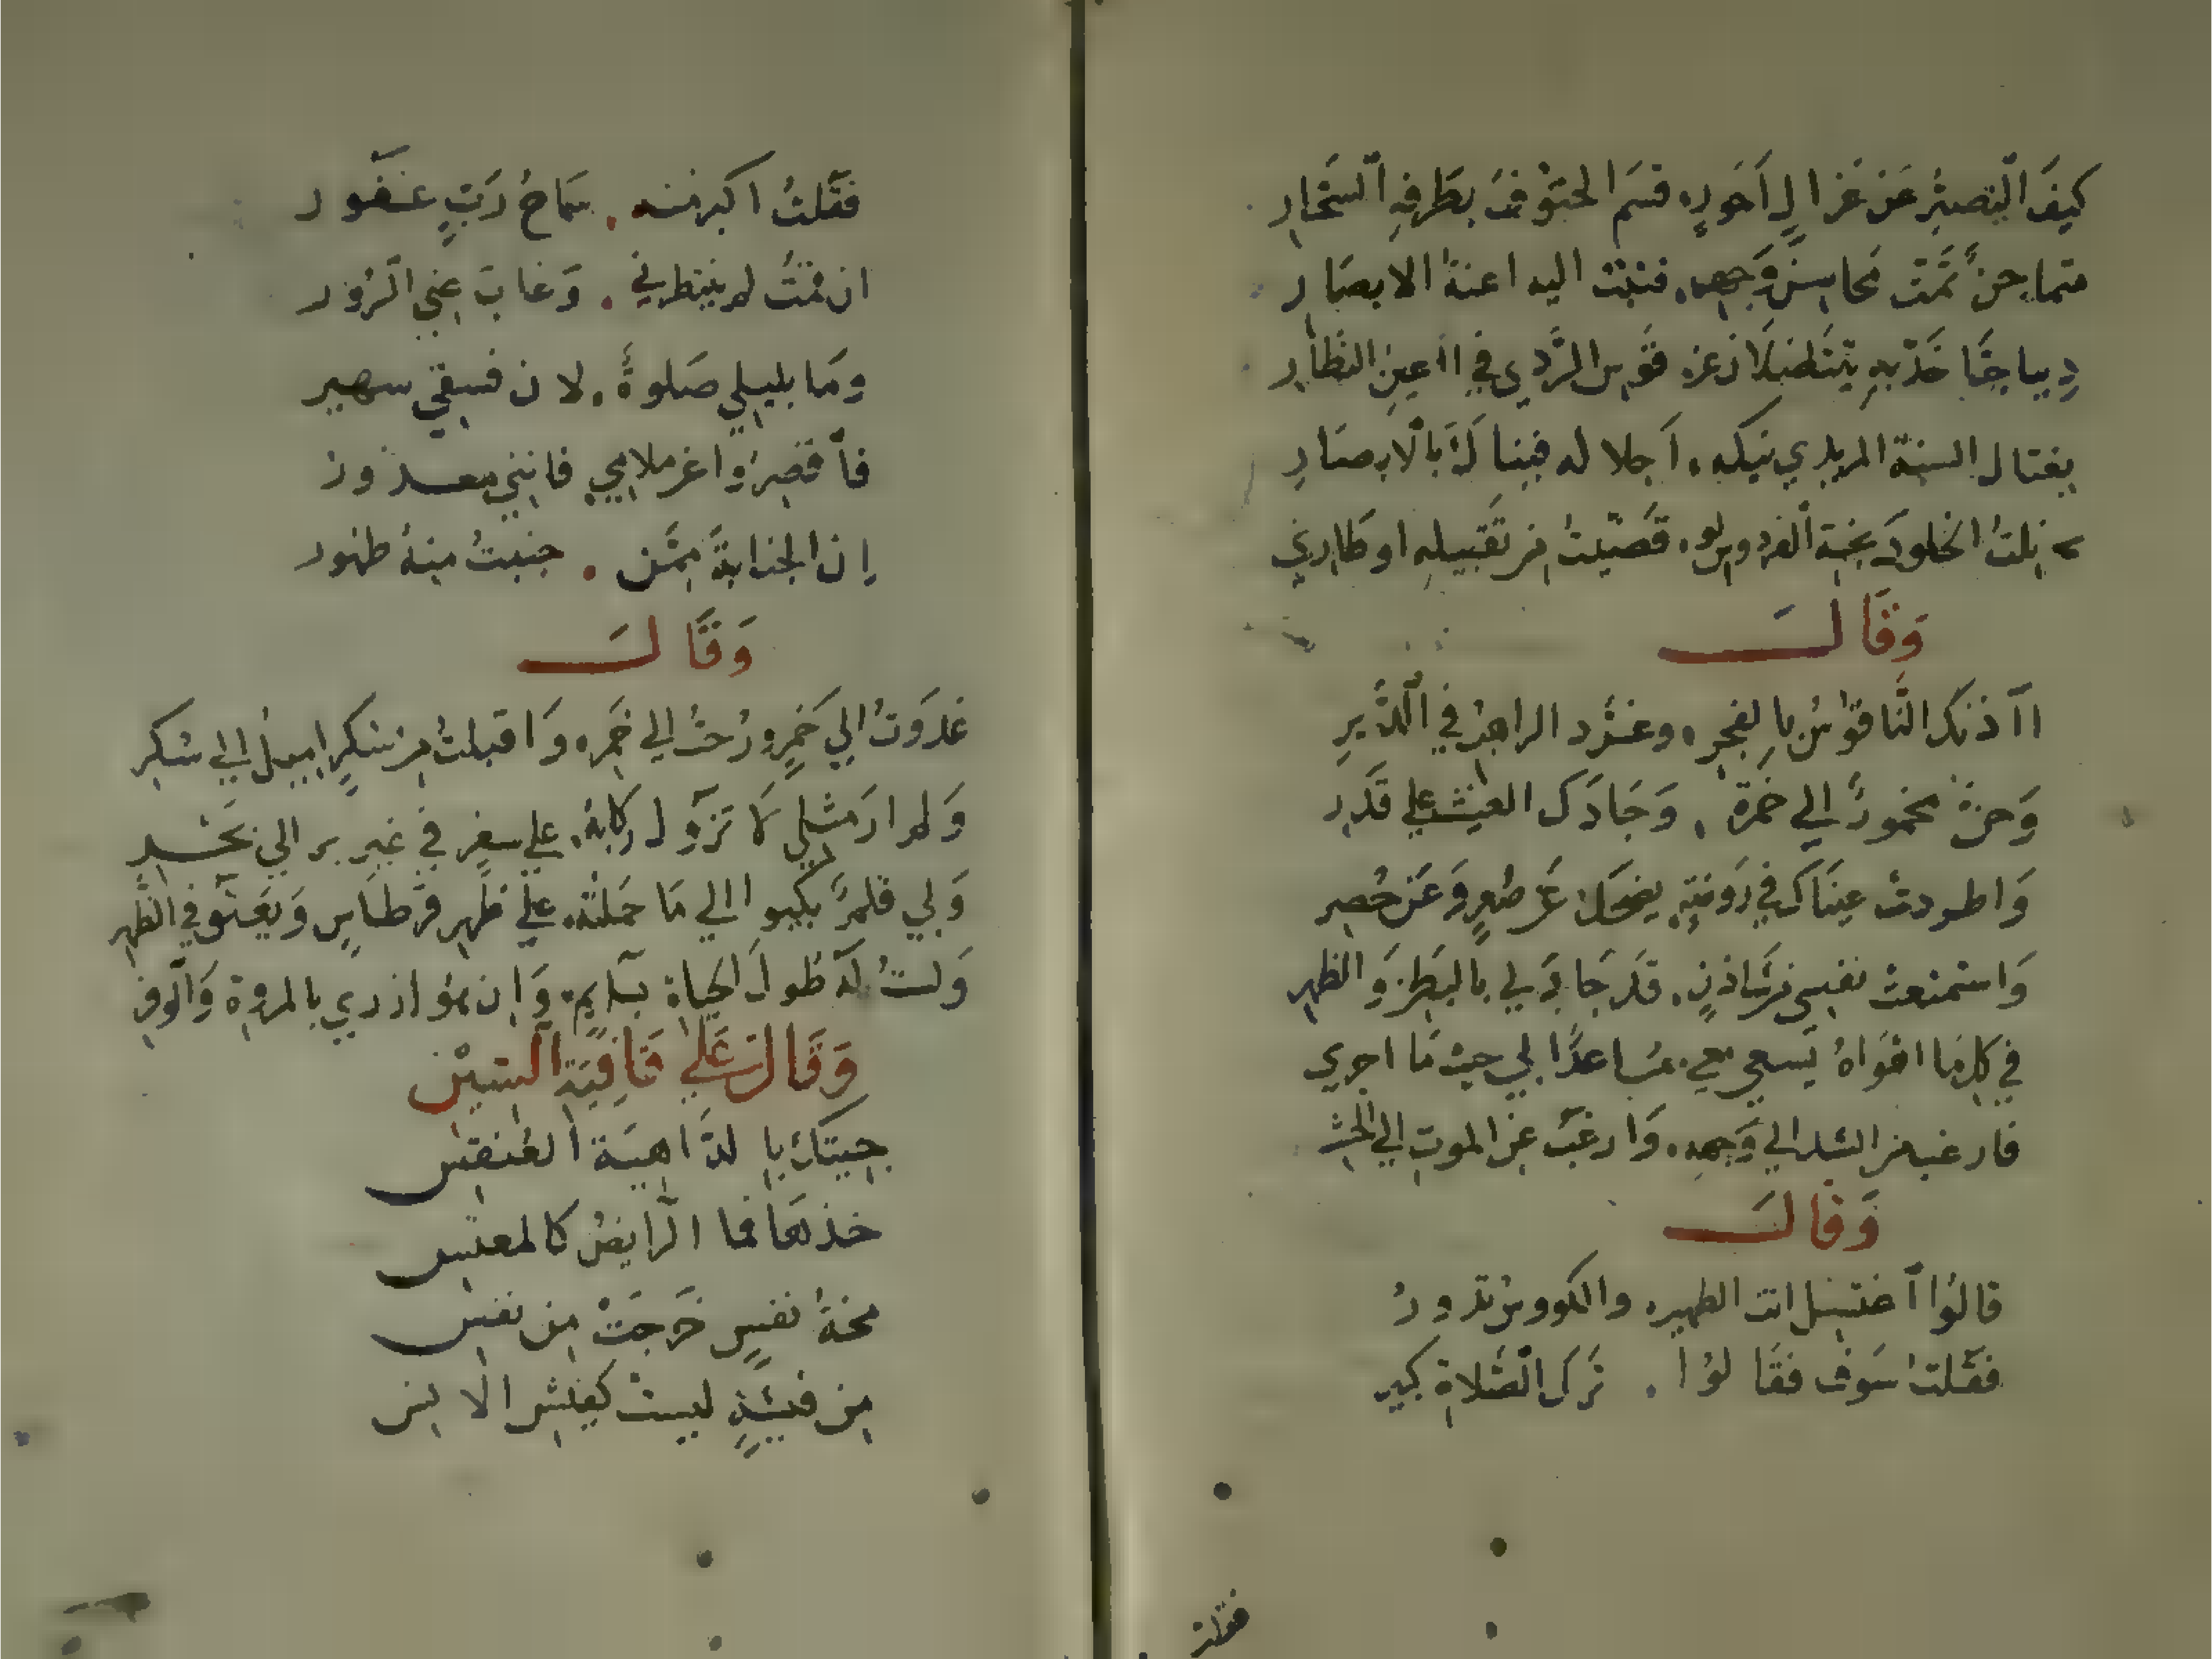 كيفَ التصبّر عَن غزالٍ اَحورٍ. قسَم الحتوْفَ بطَرفهِ السَحّارِ
متماجنٌ تمّت محاسنُ وَجهه. فثنت اليه اعنةُ الابصَارِ
دِيباجتَا خدّيهِ قوس الرّدي في اعين النظّارِ
يغتال السنة المريدي نيكه. اَجلاله فينالُ بالابصَارِ
نلتُ الخلودَ بجنة الفردوس لو. قضّيتُ من تقبيلهِ اوطاري
وَقَالَ
اآذنك النّاقوْسُ بالفجرِ. وغرّد الراهبُ في الدّيرِ
وَحنّ مخمورٌ الي خمرة. وَجَادَك الغيث علي قَدر
وَاطردت عينَاك في رَوضةٍ يضحكن عَن صُفرٍ وَعَن حُمر
وَاستمتعت نفسي من شَاذنٍ. قد جَادَ لي بالبَطن وَالظهر
في كل مَا اهوَاهُ يَسعي معي. مُسَاعدًا لي حيث مَا اجري
فارغب عن الشك الي وَجهه. وَارغَب عن الموت الي الحشر
وَقَالَ
قالوُا اَغتسل انت الظهر. والكووسُ تدورُ
فقَلت سَوف فقَالوُا. تَرك الصّلاة كبير
فقلت
فقَلتُ اكبر منه. سَماحُ رَبٍّ غفور
ان قمتُ لم ينتظرني. وَغابَ عني الزور
ومَا بليلي صَلوةٌ. لان فسقي سهير
فاَقصِروُا عن ملامي. فانني معذورُ
اِن الجنابةَ ممّن. جنبتُ منهُ طهور
وَقَالَ
غدَوتُ الي خَمرٍ ورُحتُ الي خَمره وَاقبلتُ من سكرٍ اميلُ الي سُكر
وَلم ارَ مثلي لَا تَزول ركابهُ. علي سفرٍ في غير بر الي بَحر
وَلي قلمٌ يكبو الي مَا حَملتُه. علي ظهر قرطَاسٍ وَيعَثوْ في الظهر
وَلستُ لهُ طولَ الحياة بسَايمٍ. وَان هوَ ازري بالمروة وَالوفر
وَقَالَ عَلَي قَافِيَةِ السّيْن
جيتك بالدّاهيَة العنقفس
خذهَا فما الرايضُ كالمعنس
محنةُ نفسٍ خَرجَتْ من نفس
من فيشةٍ ليست كفيش الانس